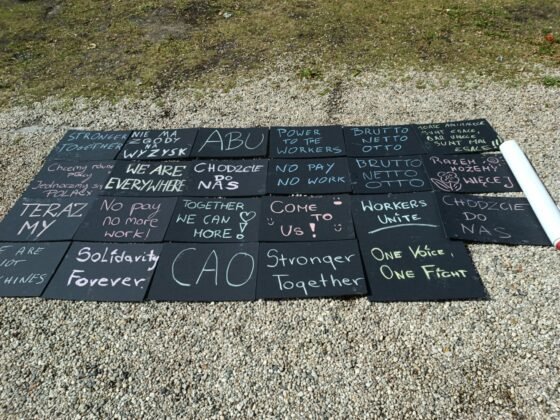 STRONGER
TOGETHER
NIE MA
ZGODY
NA
WYZYSK
ABU
POWER
TO THE
WORKERS
BRUTTO
NETTO
OTTO
SUNT EGALE,
DAR UNELE
SUNT MAI
EGALE
Chcemy równej
płacy
Jednoczmy się
POLACY
WE ARE
EVERYWHERE
CHODZCIE
DO
NAS
NO PAY
NO WORK
BRUTTO
NETTO
OTTO
RAZEM
MOŻEMY
WIĘCEJ
TERAZ
MY
No pay
no more
work!
TOGETHER
WE CAN
MORE!
COME
TO
US!
WORKERS
UNITE
CHODZCIE
DO
NAS
E ARE
NOT
CHINES
Solidarity
Forever
CAO
Stronger
Together
ONE VOICE,
ONE FIGHT